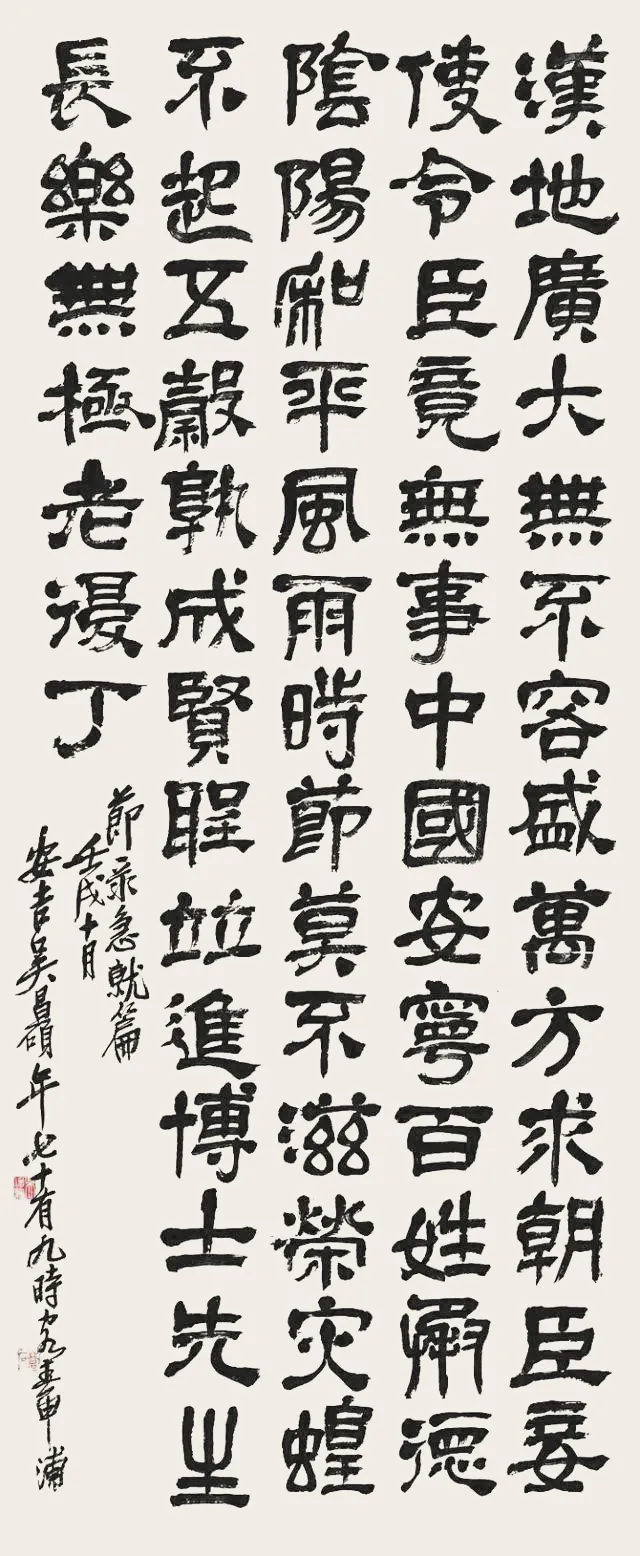 漢地廣大無不容盛萬方求朝臣妾
使令臣竟無事中國安寧百姓承德
陰陽和平風雨時節莫不滋榮灾蝗
不起五穀孰成賢聖竝進博士先生
長樂無極老復丁
節录急就篇
壬戌十月
安吉吴昌碩年七十有九時客春申浦